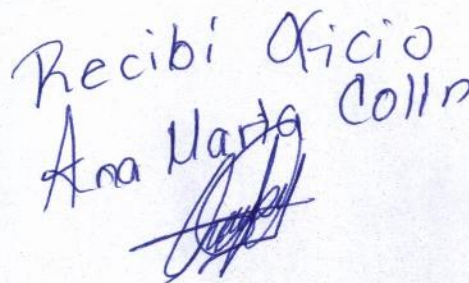 Recibí Oficio
Ana Maria Colin